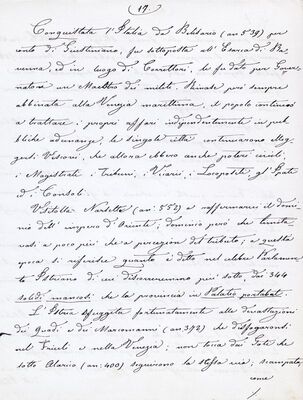 (17.)
Conquistata l'Italia da Belisario (an: 539) per
conto di Giustiniano, fu sottoposta all'Esarca di Ra-
venna, ed in luogo di Correttori, le fu dato per Gover-
natore un Maestro dei militi. Rimase però sempre
abbinata alla Venezia marittima, il popolo continuò
a trattare i proprj affari indipendentemente in pub-
bliche adunanze, le singole città continuarono
Vescovi, che allora ebbero anche poteri civili,
i Magistrati, i Tribuni, Vicari, i Locopositi, gl'Ipati
ed i Consoli.
Narsette (an: 552) a raffermare il domi-
nio dell'impero d'Oriente; dominio però che limita-
vasi a poco più che a percezione del tributo; a questa
epoca si riferisce quanto è detto nel celebre Parlamen-
to Istriano di cui discorreremo più sotto dei 344
soldi mancosi che la provincia in Palatio portabat.
L'Istria sfuggita fortunatamente alle devastazioni
dei Quadi e dei Marcomanni (an: 372) che disfogaronsi
nel Friuli e nella Venezia; non tocca dai Goti che
sotto Alarico (an: 400) seguirono la stessa via; scampata,
come